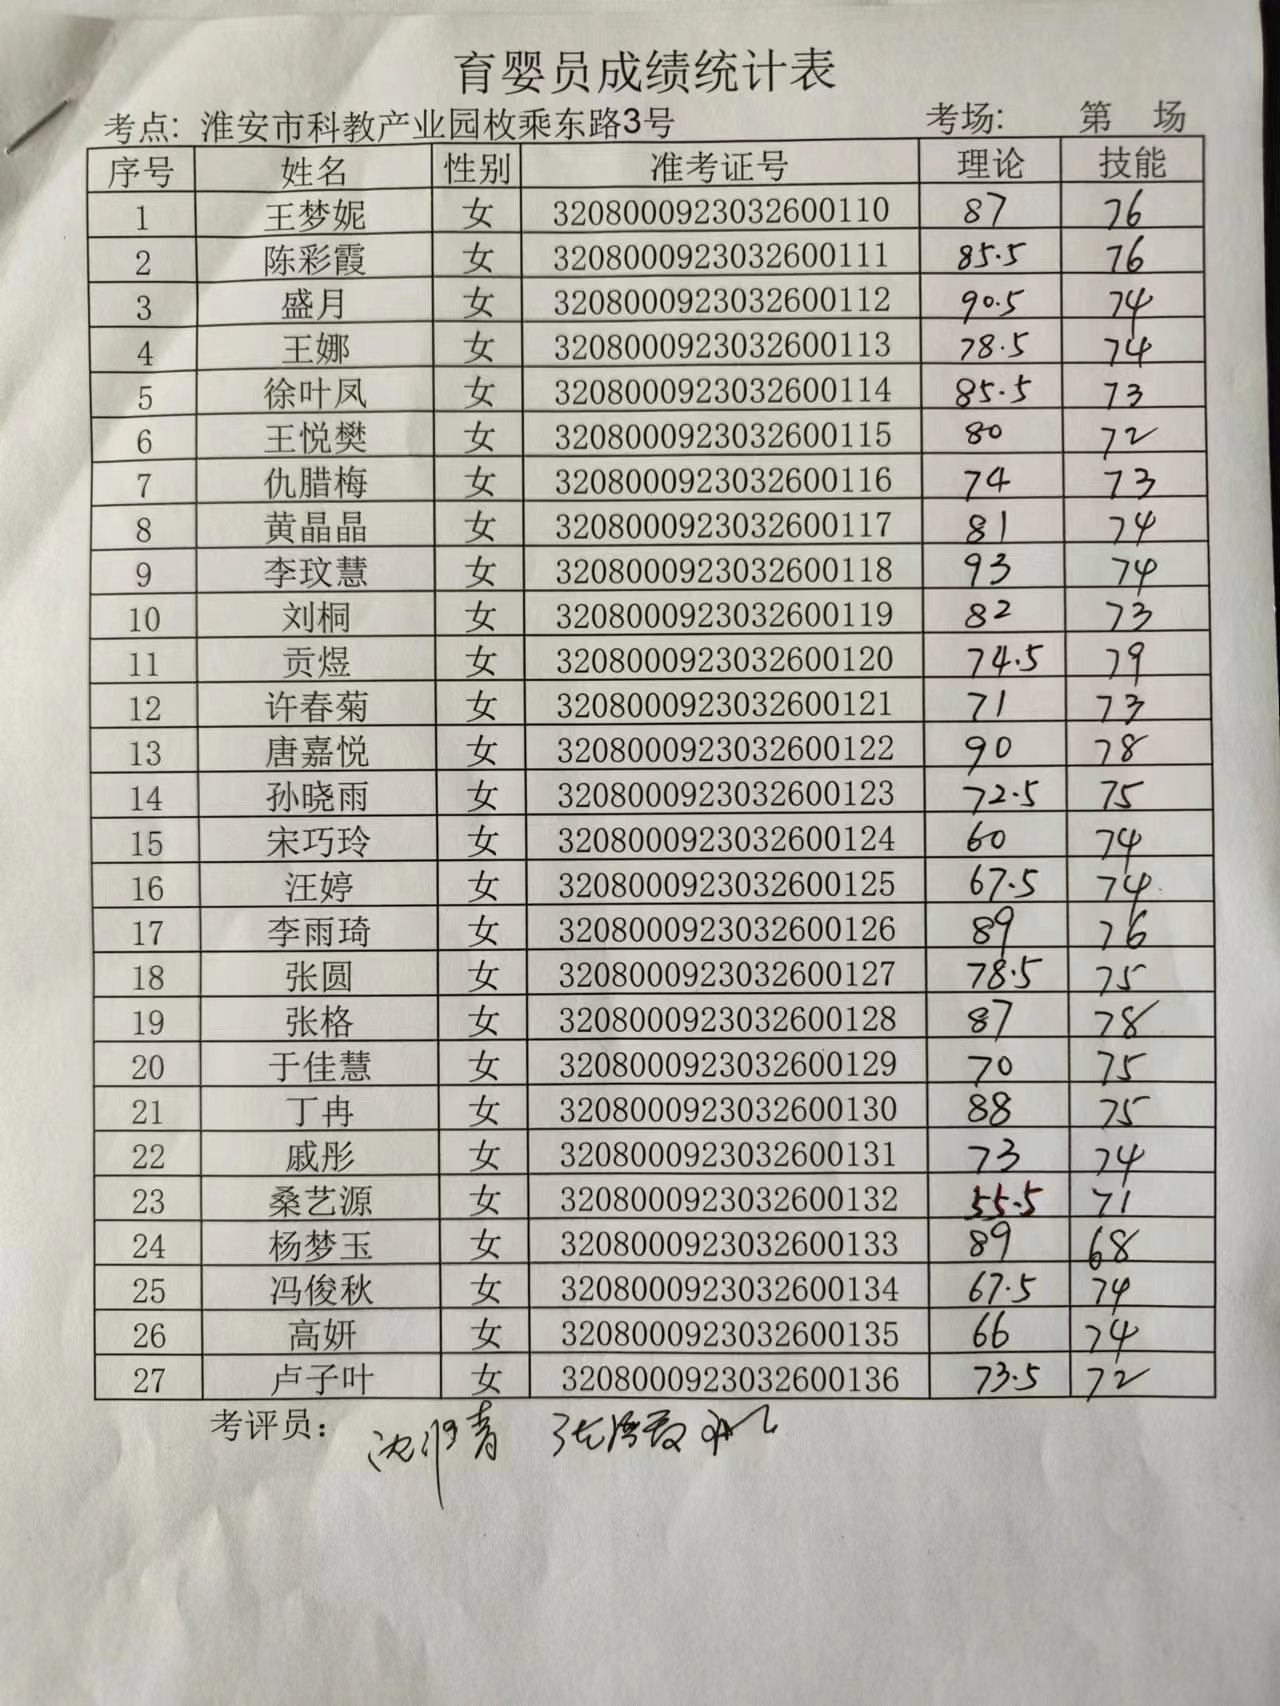 育婴员成绩统计表
考点：淮安市科教产业园枚乘东路3号 考场： 第 场
序号 姓名 性别 准考证号 理论 技能
1 王梦妮 女 3208000923032600110 87 76
2 陈彩霞 女 3208000923032600111 85.5 76
3 盛月 女 3208000923032600112 90.5 74
4 王娜 女 3208000923032600113 78.5 74
5 徐叶凤 女 3208000923032600114 85.5 73
6 王悦樊 女 3208000923032600115 80 72
7 仇腊梅 女 3208000923032600116 74 73
8 黄晶晶 女 3208000923032600117 81 74
9 李玟慧 女 3208000923032600118 93 74
10 刘桐 女 3208000923032600119 82 73
11 贡煜 女 3208000923032600120 74.5 79
12 许春菊 女 3208000923032600121 71 73
13 唐嘉悦 女 3208000923032600122 90 78
14 孙晓雨 女 3208000923032600123 72.5 75
15 宋巧玲 女 3208000923032600124 60 74
16 汪婷 女 3208000923032600125 67.5 74
17 李雨琦 女 3208000923032600126 89 76
18 张圆 女 3208000923032600127 78.5 75
19 张格 女 3208000923032600128 87 78
20 于佳慧 女 3208000923032600129 70 75
21 丁冉 女 3208000923032600130 88 75
22 戚彤 女 3208000923032600131 73 74
23 桑艺源 女 3208000923032600132 55.5 71
24 杨梦玉 女 3208000923032600133 89 68
25 冯俊秋 女 3208000923032600134 67.5 74
26 高妍 女 3208000923032600135 66 74
27 卢子叶 女 3208000923032600136 73.5 72
考评员：